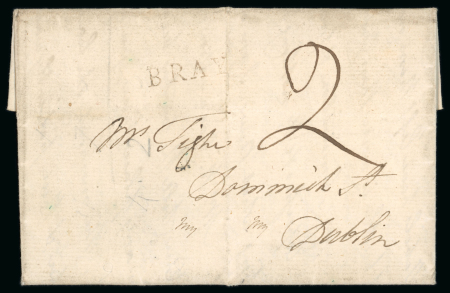 BRAY
2
Mrs Tighe
Dominick St.
Dublin